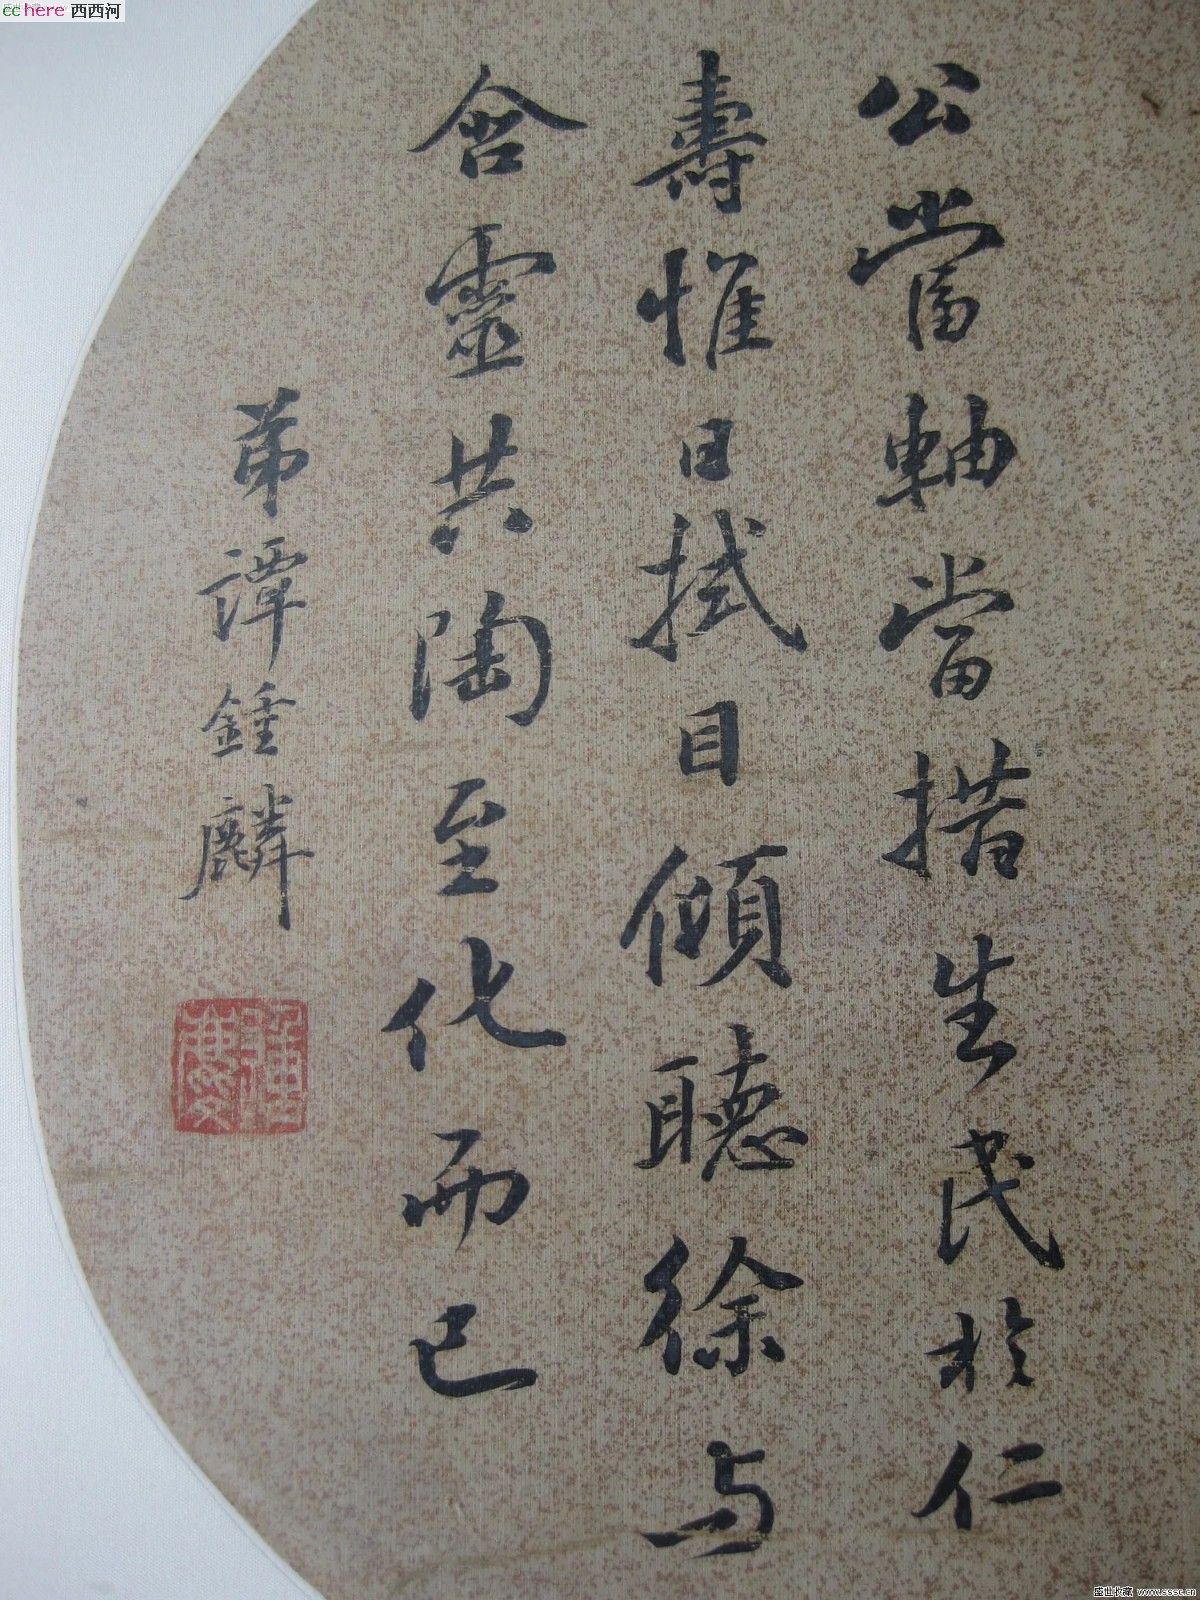 cchere 西西河
公當軸當措生民於仁
壽惟日拭目傾聽徐与
含靈共陶至化而已
弟譚鍾麟
盛世收藏 www.sssc.cn